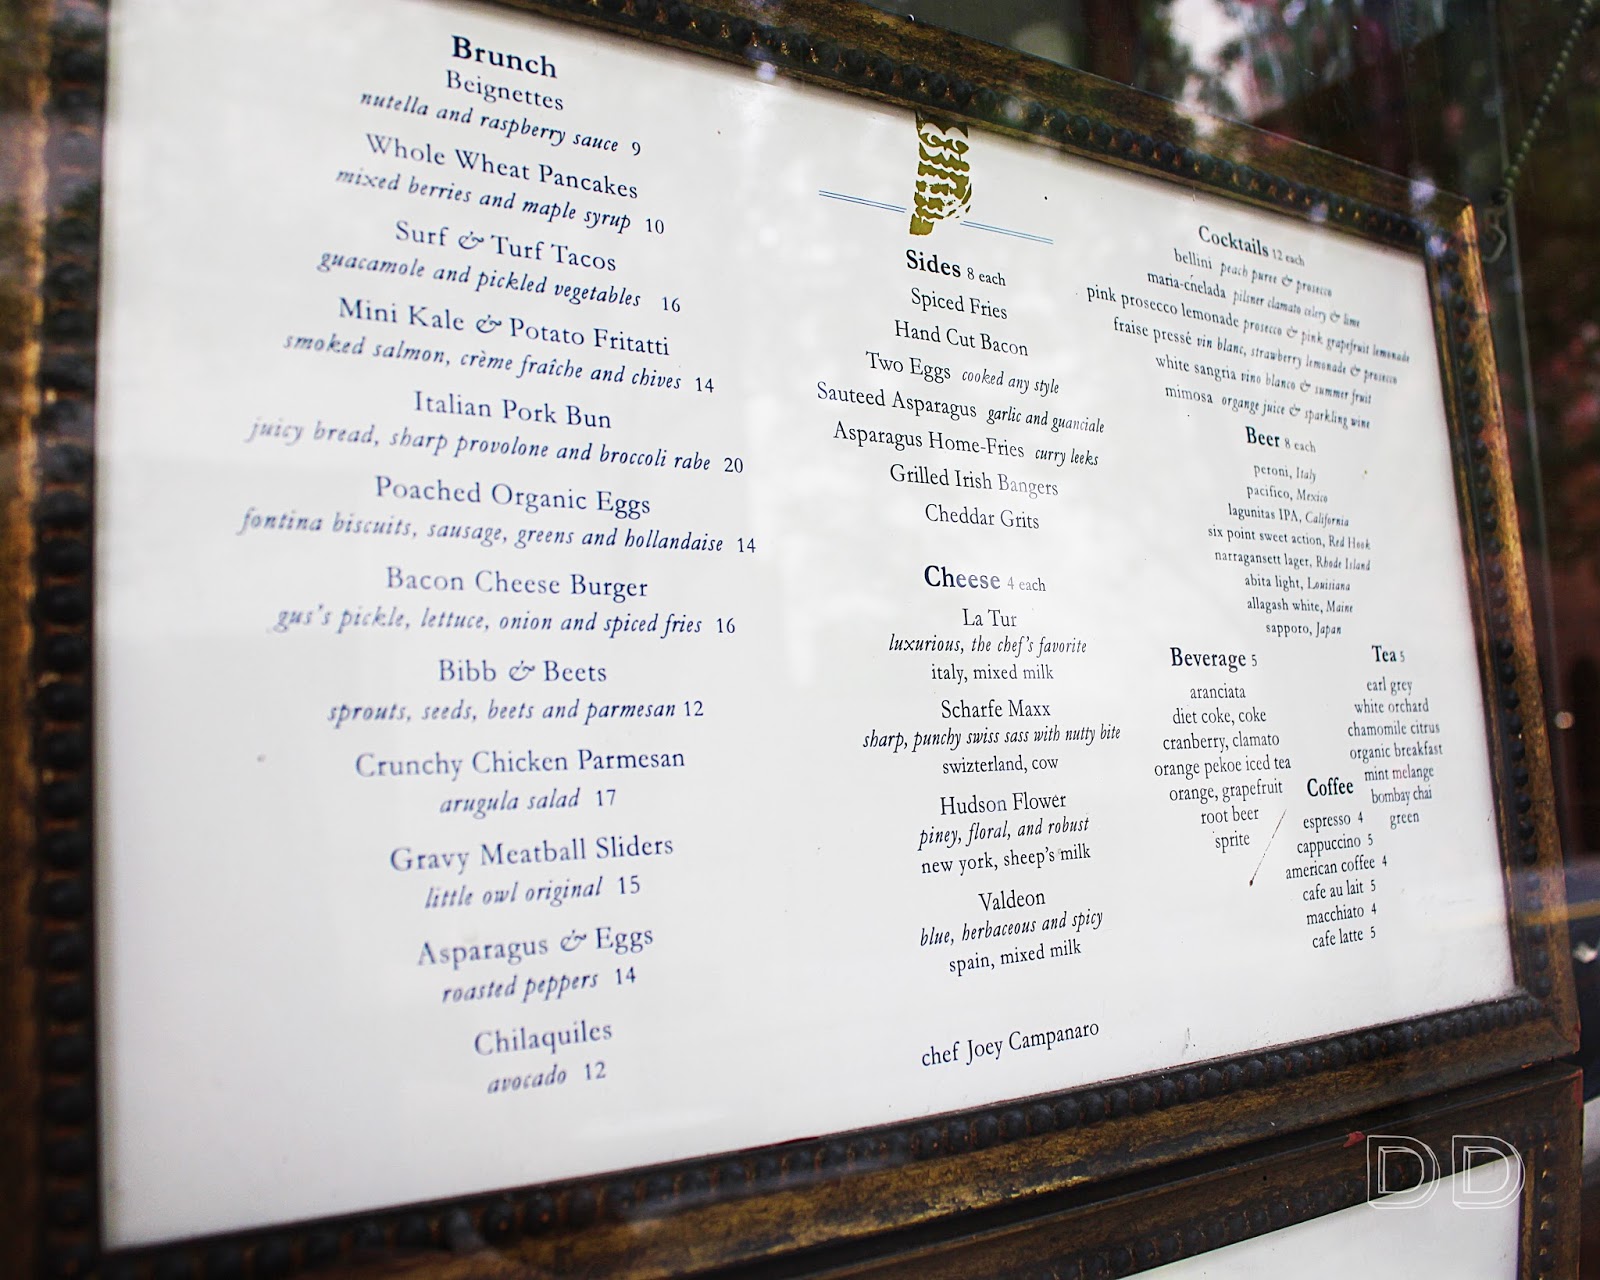 Brunch
Beignettes
nutella and raspberry sauce 9
Whole Wheat Pancakes
mixed berries and maple syrup 10
Surf & Turf Tacos
guacamole and pickled vegetables 16
Mini Kale & Potato Fritatti
smoked salmon, crème fraîche and chives 14
Italian Pork Bun
juicy bread, sharp provolone and broccoli rabe 20
Poached Organic Eggs
fontina biscuits, sausage, greens and hollandaise 14
Bacon Cheese Burger
gus's pickle, lettuce, onion and spiced fries 16
Bibb & Beets
sprouts, seeds, beets and parmesan 12
Crunchy Chicken Parmesan
arugula salad 17
Gravy Meatball Sliders
little owl original 15
Asparagus & Eggs
roasted peppers 14
Chilaquiles
avocado 12
Sides 8 each
Spiced Fries
Hand Cut Bacon
Two Eggs cooked any style
Sauteed Asparagus garlic and guanciale
Asparagus Home-Fries curry leeks
Grilled Irish Bangers
Cheddar Grits
Cheese 4 each
La Tur
luxurious, the chef's favorite
italy, mixed milk
Scharfe Maxx
sharp, punchy swiss sass with nutty bite
swizterland, cow
Hudson Flower
piney, floral, and robust
new york, sheep's milk
Valdeon
blue, herbaceous and spicy
spain, mixed milk
chef Joey Campanaro
Cocktails 12 each
bellini peach puree & prosecco
maria-chelada pilsner clamato celery & lime
pink prosecco lemonade prosecco & pink grapefruit lemonade
fraise pressé vin blanc, strawberry lemonade & prosecco
white sangria vino blanco & summer fruit
mimosa organge juice & sparkling wine
Beer 8 each
peroni, Italy
pacifico, Mexico
lagunitas IPA, California
six point sweet action, Red Hook
narragansett lager, Rhode Island
abita light, Louisiana
allagash white, Maine
sapporo, Japan
Beverage 5
aranciata
diet coke, coke
cranberry, clamato
orange pekoe iced tea
orange, grapefruit
root beer
sprite
Tea 5
earl grey
white orchard
chamomile citrus
organic breakfast
mint melange
bombay chai
green
Coffee
espresso 4
cappuccino 5
american coffee 4
cafe au lait 5
macchiato 4
cafe latte 5
DD